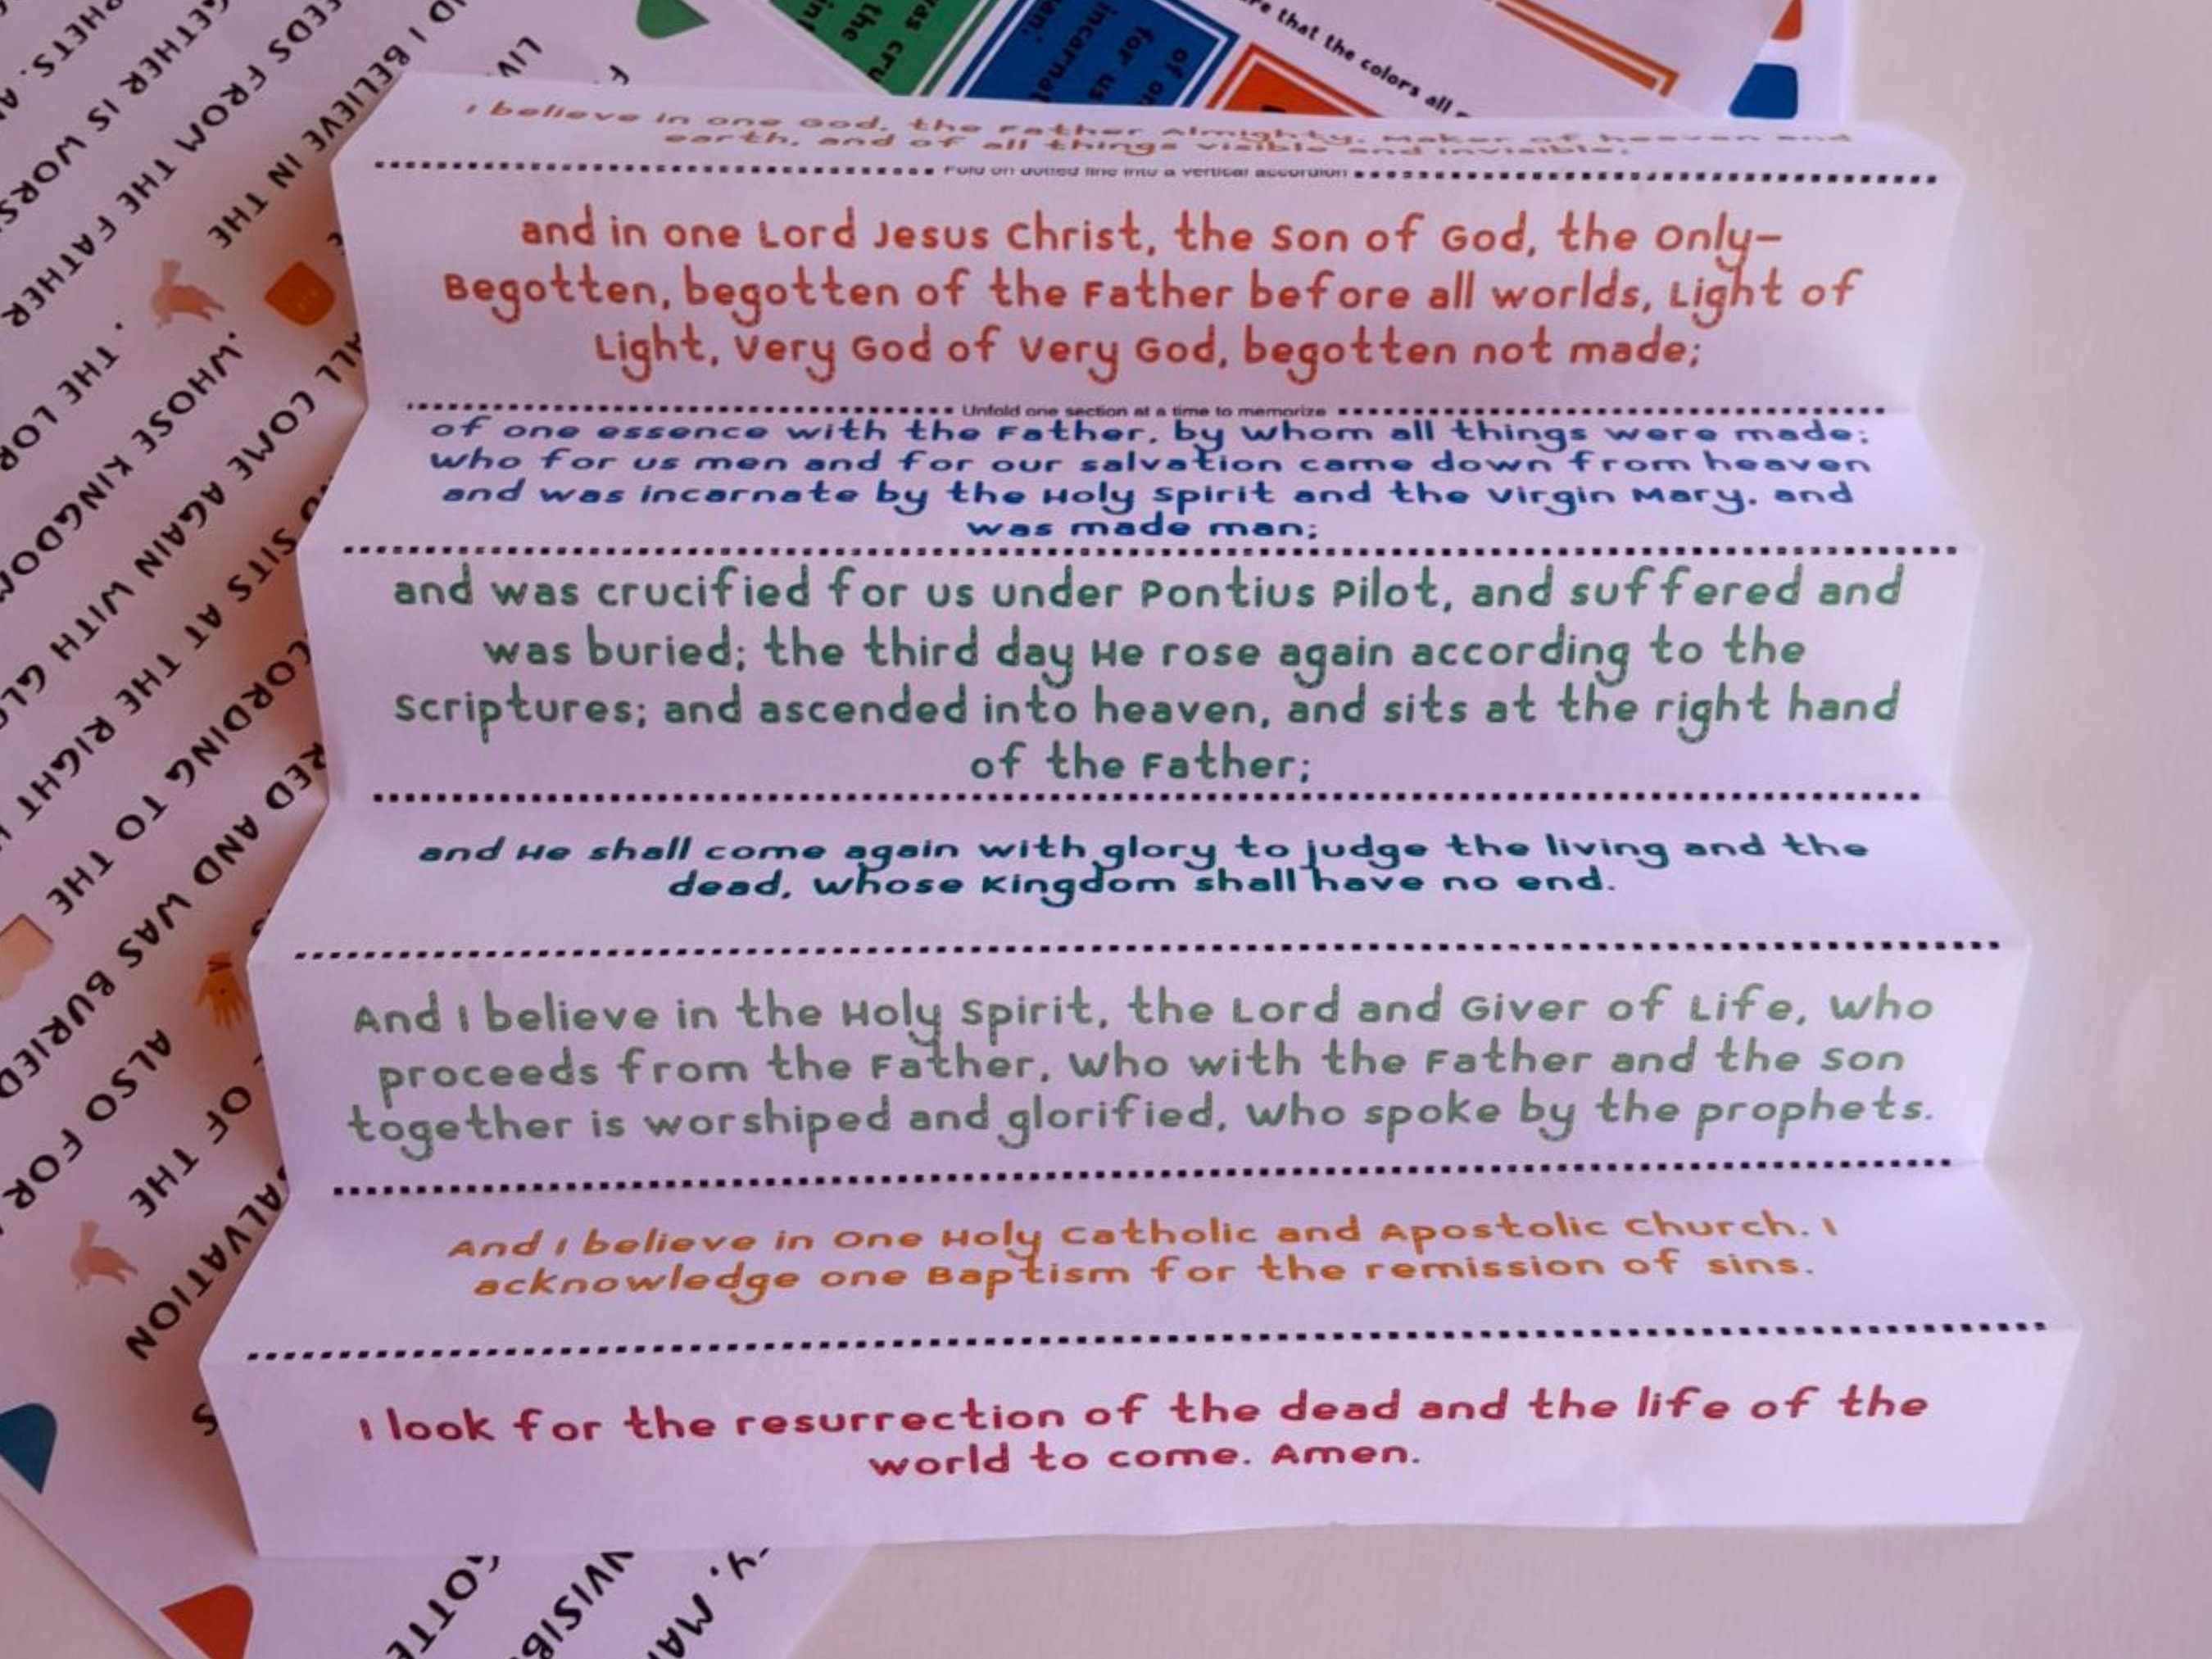 I believe in one God, the Father Almighty, Maker of heaven and
earth, and of all things visible and invisible;
Fold on dotted line into a vertical accordion
and in one Lord Jesus Christ, the Son of God, the Only-
Begotten, begotten of the Father before all worlds, Light of
Light, Very God of Very God, begotten not made;
Unfold one section at a time to memorize
of one essence with the Father, by Whom all things were made;
Who for us men and for our salvation came down from heaven
and was incarnate by the Holy Spirit and the Virgin Mary, and
was made man;
and was crucified for us under Pontius Pilot, and suffered and
was buried; the third day He rose again according to the
Scriptures; and ascended into heaven, and sits at the right hand
of the Father;
and He shall come again with glory to judge the living and the
dead, Whose Kingdom shall have no end.
And I believe in the Holy Spirit, the Lord and Giver of Life, Who
proceeds from the Father, Who with the Father and the Son
together is worshiped and glorified, Who spoke by the prophets.
And I believe in One Holy Catholic and Apostolic Church. I
acknowledge one Baptism for the remission of sins.
I look for the resurrection of the dead and the life of the
world to come. Amen.
that the colors all
I BELIEVE IN THE
FROM THE FATHER
IS
THE
WHOSE
COME AGAIN WITH
SITS AT THE RIGHT
TO THE
AND WAS BURIED
ALSO FOR
OF THE